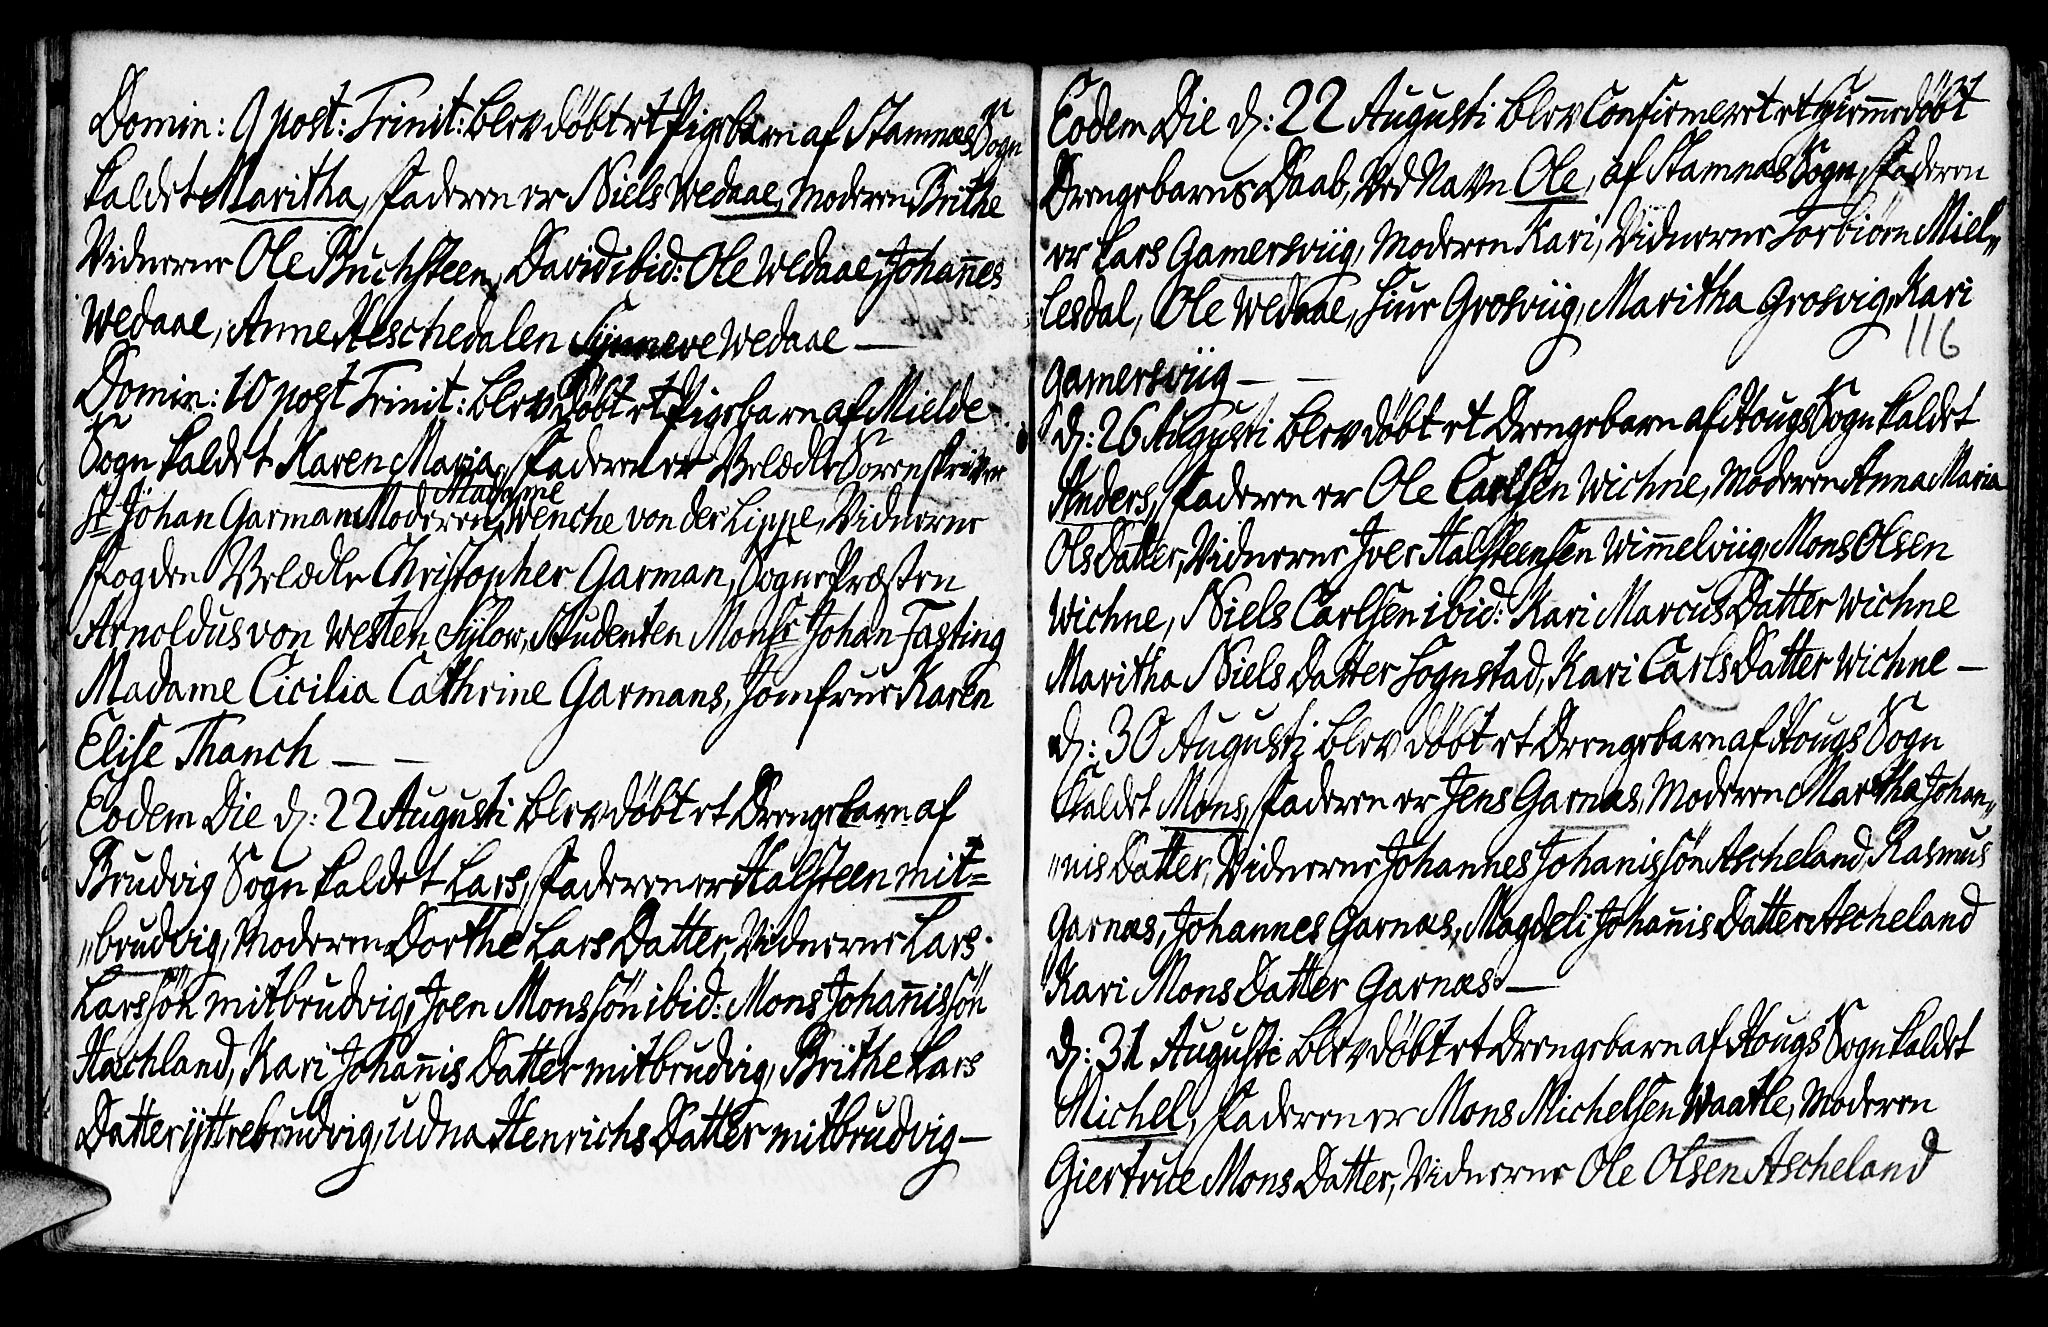 Domin: 9 post: Trinit: blev döbt et Pigebarn af Stamnæs Sogn
kaldet Maritha, Faderen er Niels Wedaae, Moderen Brithe
Vidnerne Ole Buchsteen, David ibid: Ole Wedaae, Johañes
Wedaae, Anne Aeschedalen Synneve Wedaae —
Domin: 10 post Trinit: blev döbt et Pigebarn af Mielde
Sogn kaldet Karen Maria, Faderen er Velædle Sorenskriver
Sr Johan Garman Moderen, Madame Wenche von der Lippe, Vidnerne
Fogden Velædle Christopher Garman, Sogne Præsten
Arnoldus von Westen Sylow, Studenten Monsr Johan Fasting
Madame Cicilia Cathrine Garmans, Jomfrue Karen
Elise Thanch — —
Eodem Die d: 22 Augusti blev döbt et Drengebarn af
Brudvig Sogn kaldet Lars, Faderen er Halsteen mit=
"brudvig, Moderen Dorthe Lars Datter, Vidnerne Lars
Larssön mitbrudvig, Joen Monssön ibid: Mons Johañissön
Haschland, Kari Johañis Datter mitbrudvig, Brithe Lars
Datter ÿttrebrudvig, udna Henrichs Datter mitbrudvig —
Eodem Die d: 22 Augusti blev Confirmeret et hiemedöbt
Drengebarns Daab, ved Navn Ole, af Stamnæs Sogn, Faderen
er Lars Gamersviig, Moderen Kari, Vidnerne Torbiörn Miel"
lesdal, Ole Wedaae, Siur Grosviig, Maritha Grosvig, Kari
116
Gamersviig — —
d: 26 Augusti blev döbt et Drengebarn af Hougs Sogn kaldet
Anders, Faderen er Ole Carlsen Wichne, Moderen Anna Maria
Ols Datter, Vidnerne Iver Halsteensen Wim̃elviig, Mons Olsen
Wichne, Niels Carlsen ibid: Kari Marcus Datter Wichne
Maritha Niels Datter Sognstad, Kari Carls Datter Wichne —
d: 30 Augusti blev döbt et Drengebarn af Hougs Sogn
kaldet Mons, Faderen er Jens Garnæs, Moderen Martha Johan"
"nis Datter, Vidnerne Johannes Johanissön Ascheland, Rasmus
Garnæs, Johannes Garnæs, Magdeli Johañis Datter Ascheland
Kari Mons Datter Garnæs: —
d: 31 Augusti blev döbt et Drengebarn af Hougs Sogn kaldet
Michel, Faderen er Mons Michelsen Waatle, Moderen
Giertrue Mons Datter, Vidnerne Ole Olsen Ascheland